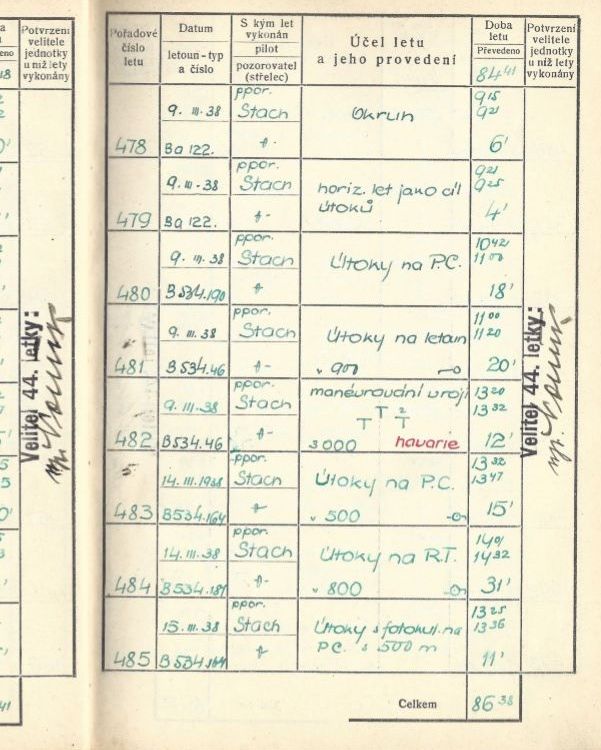 Potvrzení
velitele
jednotky
u níž lety
vykonány
Velitel 44. letky:
Pořadové
číslo
letu
Datum
letoun - typ
a číslo
S kým let
vykonán
pilot
pozorovatel
(střelec)
Účel letu
a jeho provedení
Doba
letu
Převedeno
84 41
Potvrzení
velitele
jednotky
u níž lety
vykonány
478
9. III. 38
Ba 122.
ppor.
Stach
Okruh
9 15
9 21
6'
479
9. III. 38
Ba 122.
ppor.
Stach
horiz. let jako cíl
útoků
9 21
9 25
4'
480
9. III. 38
B 534.190
ppor.
Stach
Útoky na P.C.
10 42
11 00
18'
481
9. III. 38
B 534.46
ppor.
Stach
Útoky na letoun
900
11 00
11 20
20'
482
9. III. 38
B 534.46
ppor.
Stach
manévrování v roji
3000
havarie
13 20
13 32
12'
483
14. III. 1938
B 534.164
ppor.
Stach
Útoky na P.C.
500
13 32
13 47
15'
484
14. III. 38
ppor.
Stach
Útoky na R.T.
800
14 01
14 32
31'
485
15. III. 38
B 534.164
ppor.
Stach
Útoky s fotokul. na
P.C. s 500 m
13 25
13 36
11'
Velitel 44. letky:
Celkem
86 38